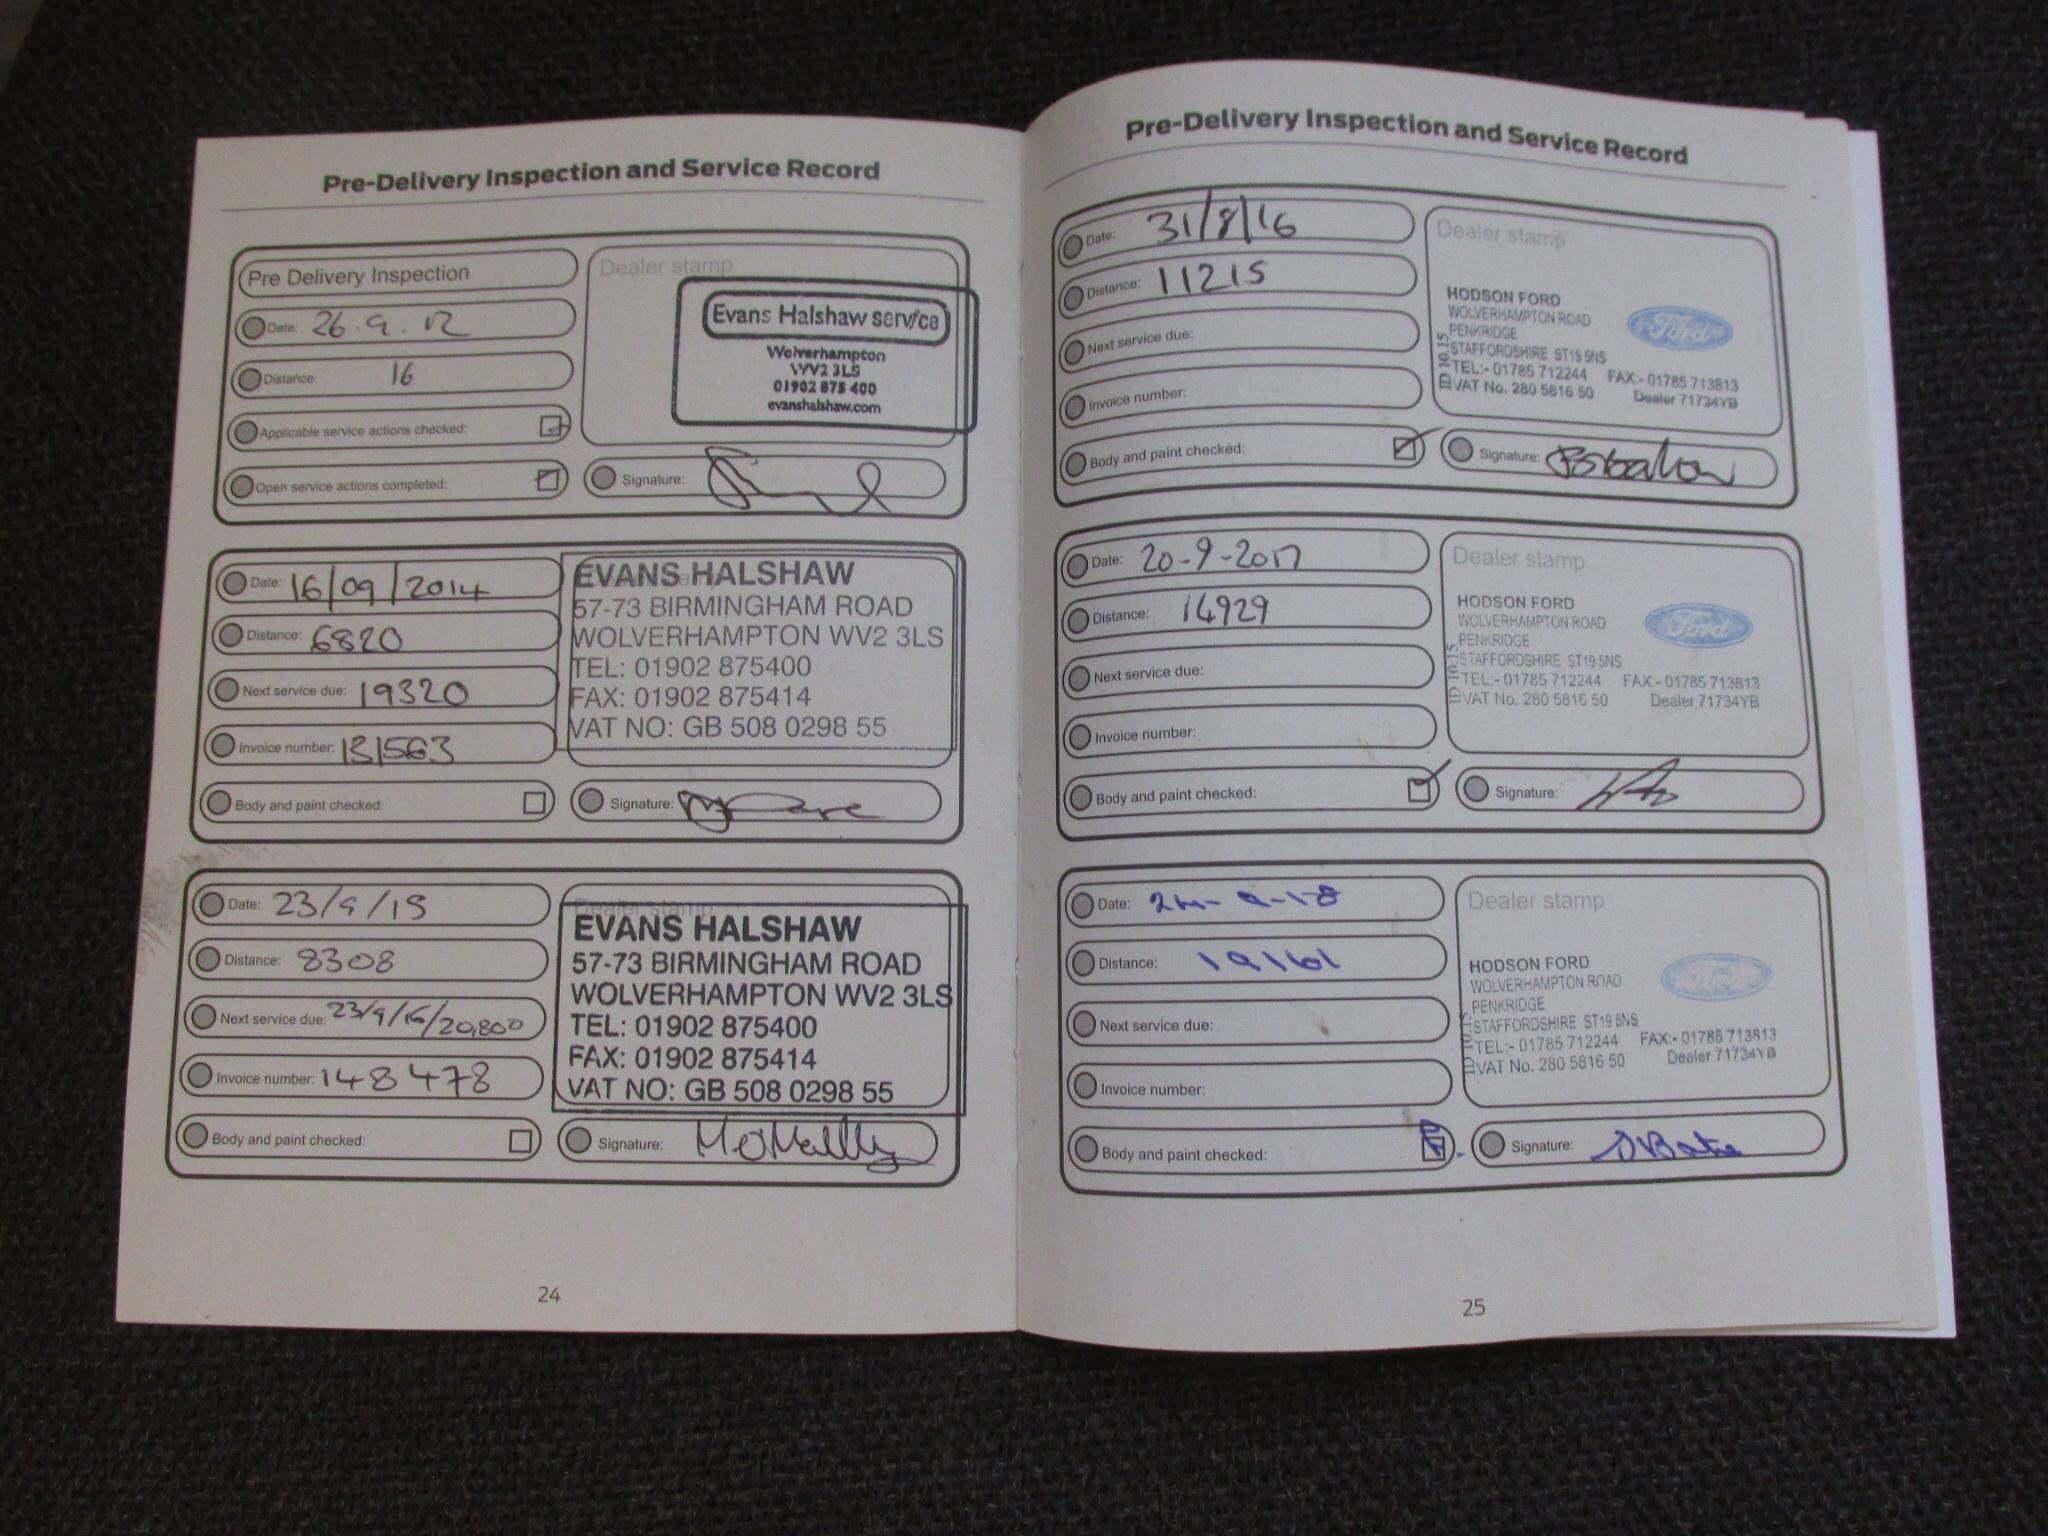 Pre-Delivery Inspection and Service Record
Pre Delivery Inspection
Date: 26.9.12
Distance: 16
Applicable service actions checked:
Open service actions completed:
Dealer stamp
Evans Halshaw service
Wolverhampton
WV2 3LS
01902 875 400
evanshalshaw.com
Signature:
Date: 16/09/2014
Distance: 6820
Next service due: 19320
Invoice number: 131563
Body and paint checked:
EVANS HALSHAW
57-73 BIRMINGHAM ROAD
WOLVERHAMPTON WV2 3LS
TEL: 01902 875400
FAX: 01902 875414
VAT NO: GB 508 0298 55
Signature:
Date: 23/9/15
Distance: 8308
Next service due: 23/9/16/20,800
Invoice number: 148478
Body and paint checked:
Dealer stamp
EVANS HALSHAW
57-73 BIRMINGHAM ROAD
WOLVERHAMPTON WV2 3LS
TEL: 01902 875400
FAX: 01902 875414
VAT NO: GB 508 0298 55
Signature:
24
Pre-Delivery Inspection and Service Record
Date: 31/8/16
Distance: 11215
Next service due:
Invoice number:
Body and paint checked:
Dealer stamp
HODSON FORD
WOLVERHAMPTON ROAD
PENKRIDGE
STAFFORDSHIRE ST19 5NS
TEL:- 01785 712244 FAX:- 01785 713813
VAT No. 280 5816 50 Dealer 71734YB
ID 10.15
Ford
Signature:
Date: 20-9-2017
Distance: 14929
Next service due:
Invoice number:
Body and paint checked:
Dealer stamp
HODSON FORD
WOLVERHAMPTON ROAD
PENKRIDGE
STAFFORDSHIRE ST19 5NS
TEL:- 01785 712244 FAX:- 01785 713813
VAT No. 280 5816 50 Dealer 71734YB
ID 10.15
Ford
Signature:
Date: 24-9-18
Distance: 19161
Next service due:
Invoice number:
Body and paint checked:
Dealer stamp
HODSON FORD
WOLVERHAMPTON ROAD
PENKRIDGE
STAFFORDSHIRE ST19 5NS
TEL:- 01785 712244 FAX:- 01785 713813
VAT No. 280 5816 50 Dealer 71734YB
ID 10.15
Ford
Signature:
25